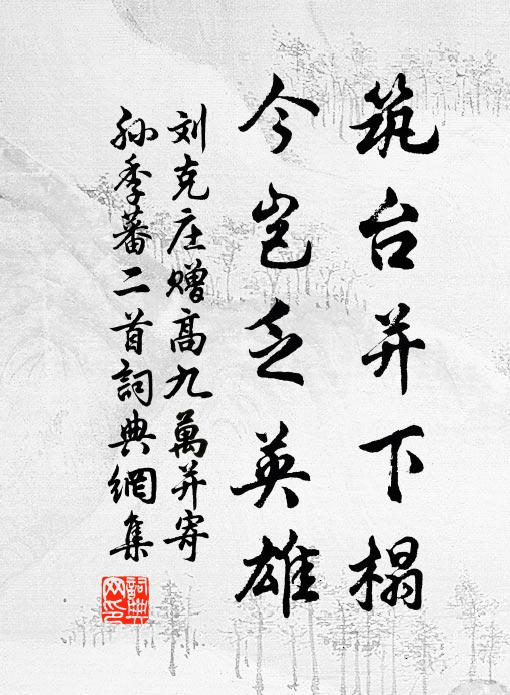 筑台并下榻
今岂乏英雄
刘克庄赠高九萬并寄
孙季蕃二首詞典網集
詞典網印